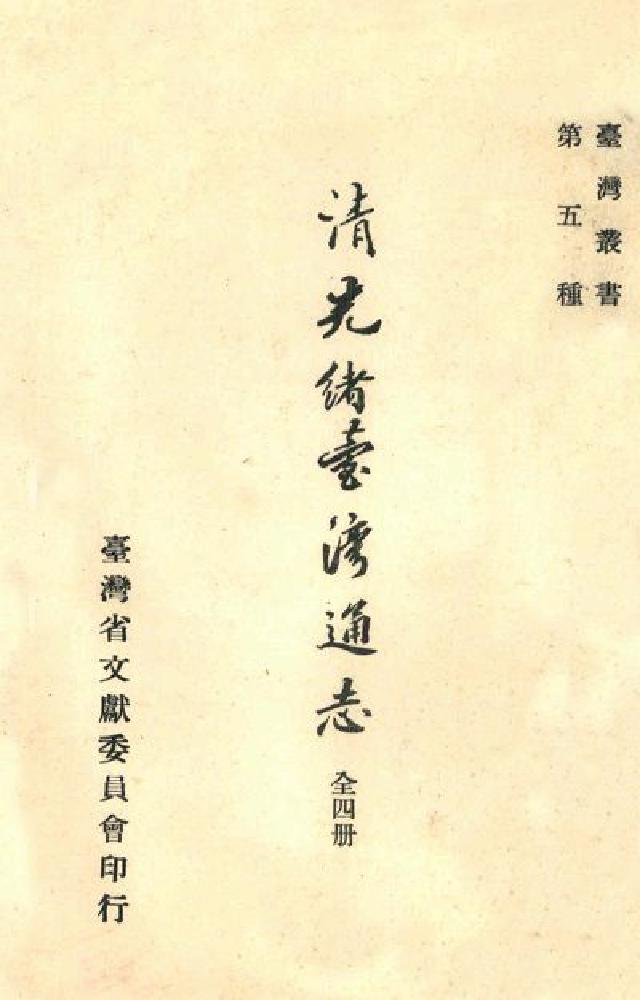 臺灣叢書
第五種
清光緒臺灣通志
全四册
臺灣省文獻委員會印行